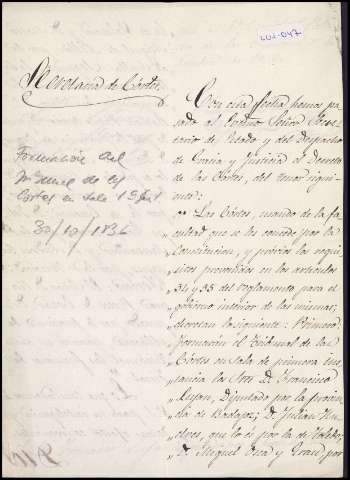 Secretaria de Córtes.
Formación del
Tribunal de las
Cortes en Sala 1ª Inst
30/10/1836
Con esta fecha hemos pa
sado al Escmo. Señor Secre
tario de Estado y del Despacho
de Gracia y Justicia el Decreto
de las Córtes, del tenor siguien
te:
"Las Córtes, usando de la fa
cultad que se les concede por la
Constitucion, y previos los requi
sitos prevenidos en los articulos
54 y 55 del reglamento para el
gobierno interior de las mismas;
decretan lo siguiente: Primero:
Formarán el Tribunal de las
Córtes en Sala de primera ins
tancia los Sres. D. Francisco
Lujan, Diputado por la provin
cia de Badajoz; D. Julian Hu
elves, que lo es por la de Toledo;
D. Miguel Roca y por